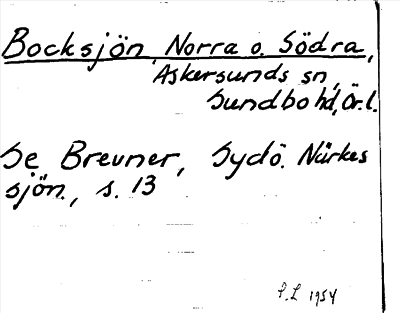 Bocksjön, Norra o. Södra,
Askersunds sn,
Sundbo hd, Ör.l.
Se Brevner, Sydö. Närkes
sjön., s. 13
P.L 1954